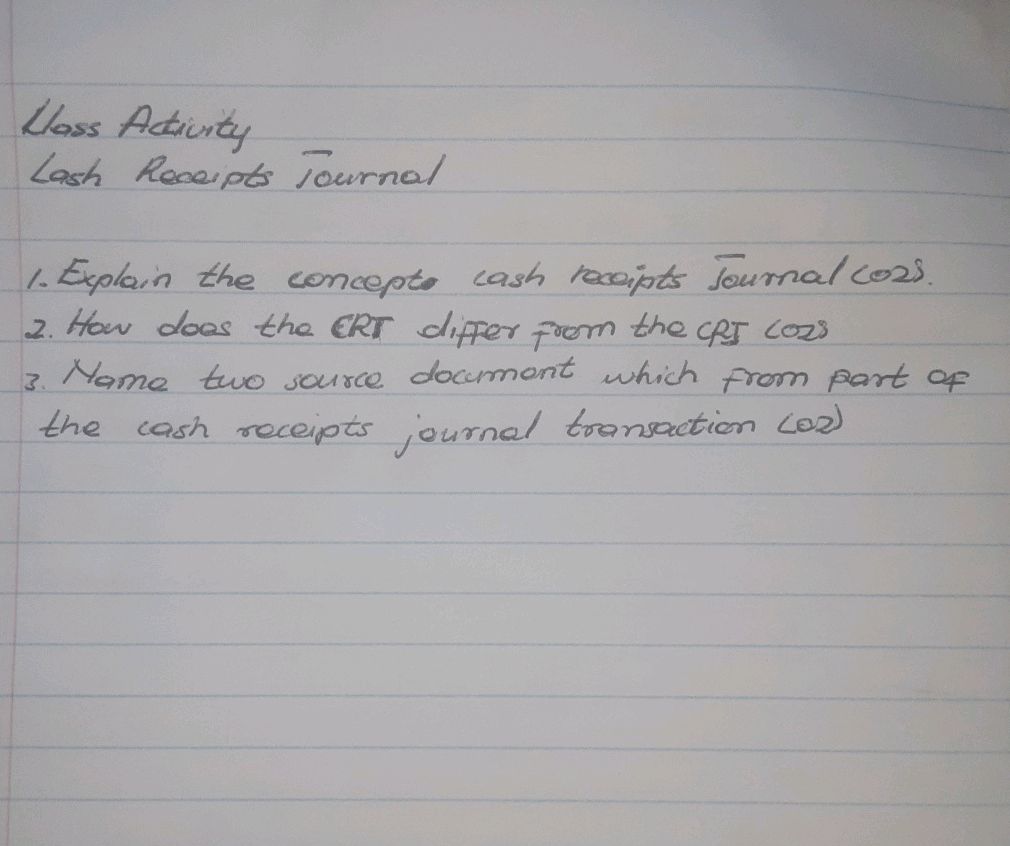 Class Activity
Cash Receipts Journal
1. Explain the concepts cash receipts Journal (02).
2. How does the CRJ differ from the CPJ (02)
3. Name two source document which from part of
the cash receipts journal transaction (02)